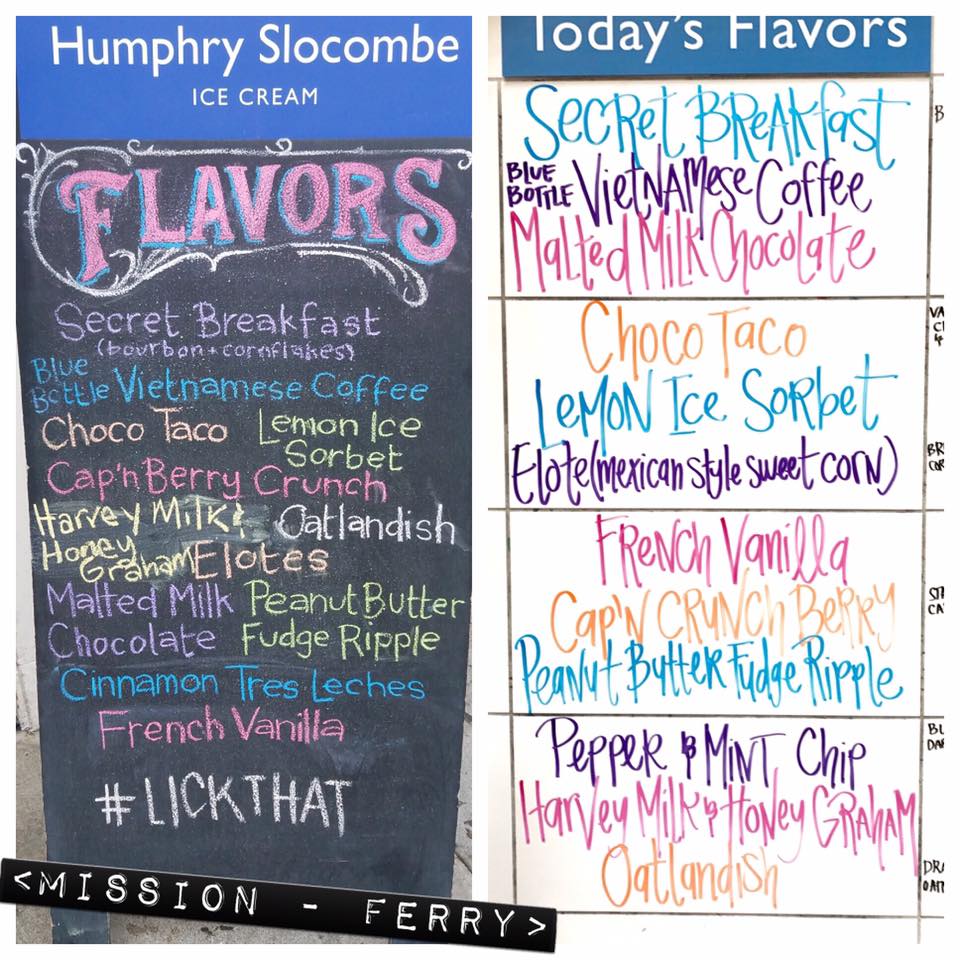 Humphry Slocombe
ICE CREAM
FLAVORS
Secret Breakfast
(bourbon + cornflakes)
Blue
Bottle Vietnamese Coffee
Choco Taco
Lemon Ice
Sorbet
Cap'n Berry Crunch
Harvey Milk &
Honey
Graham
Oatlandish
Elotes
Malted Milk
Chocolate
Peanut Butter
Fudge Ripple
Cinnamon Tres Leches
French Vanilla
#LICKTHAT
Today's Flavors
Secret Breakfast
BLUE
BOTTLE Vietnamese Coffee
Malted Milk Chocolate
Choco Taco
Lemon Ice Sorbet
Elote (mexican style sweet corn)
French Vanilla
Cap'n Crunch Berry
Peanut Butter Fudge Ripple
Pepper & Mint Chip
Harvey Milk & Honey Graham
Oatlandish
<MISSION - FERRY>